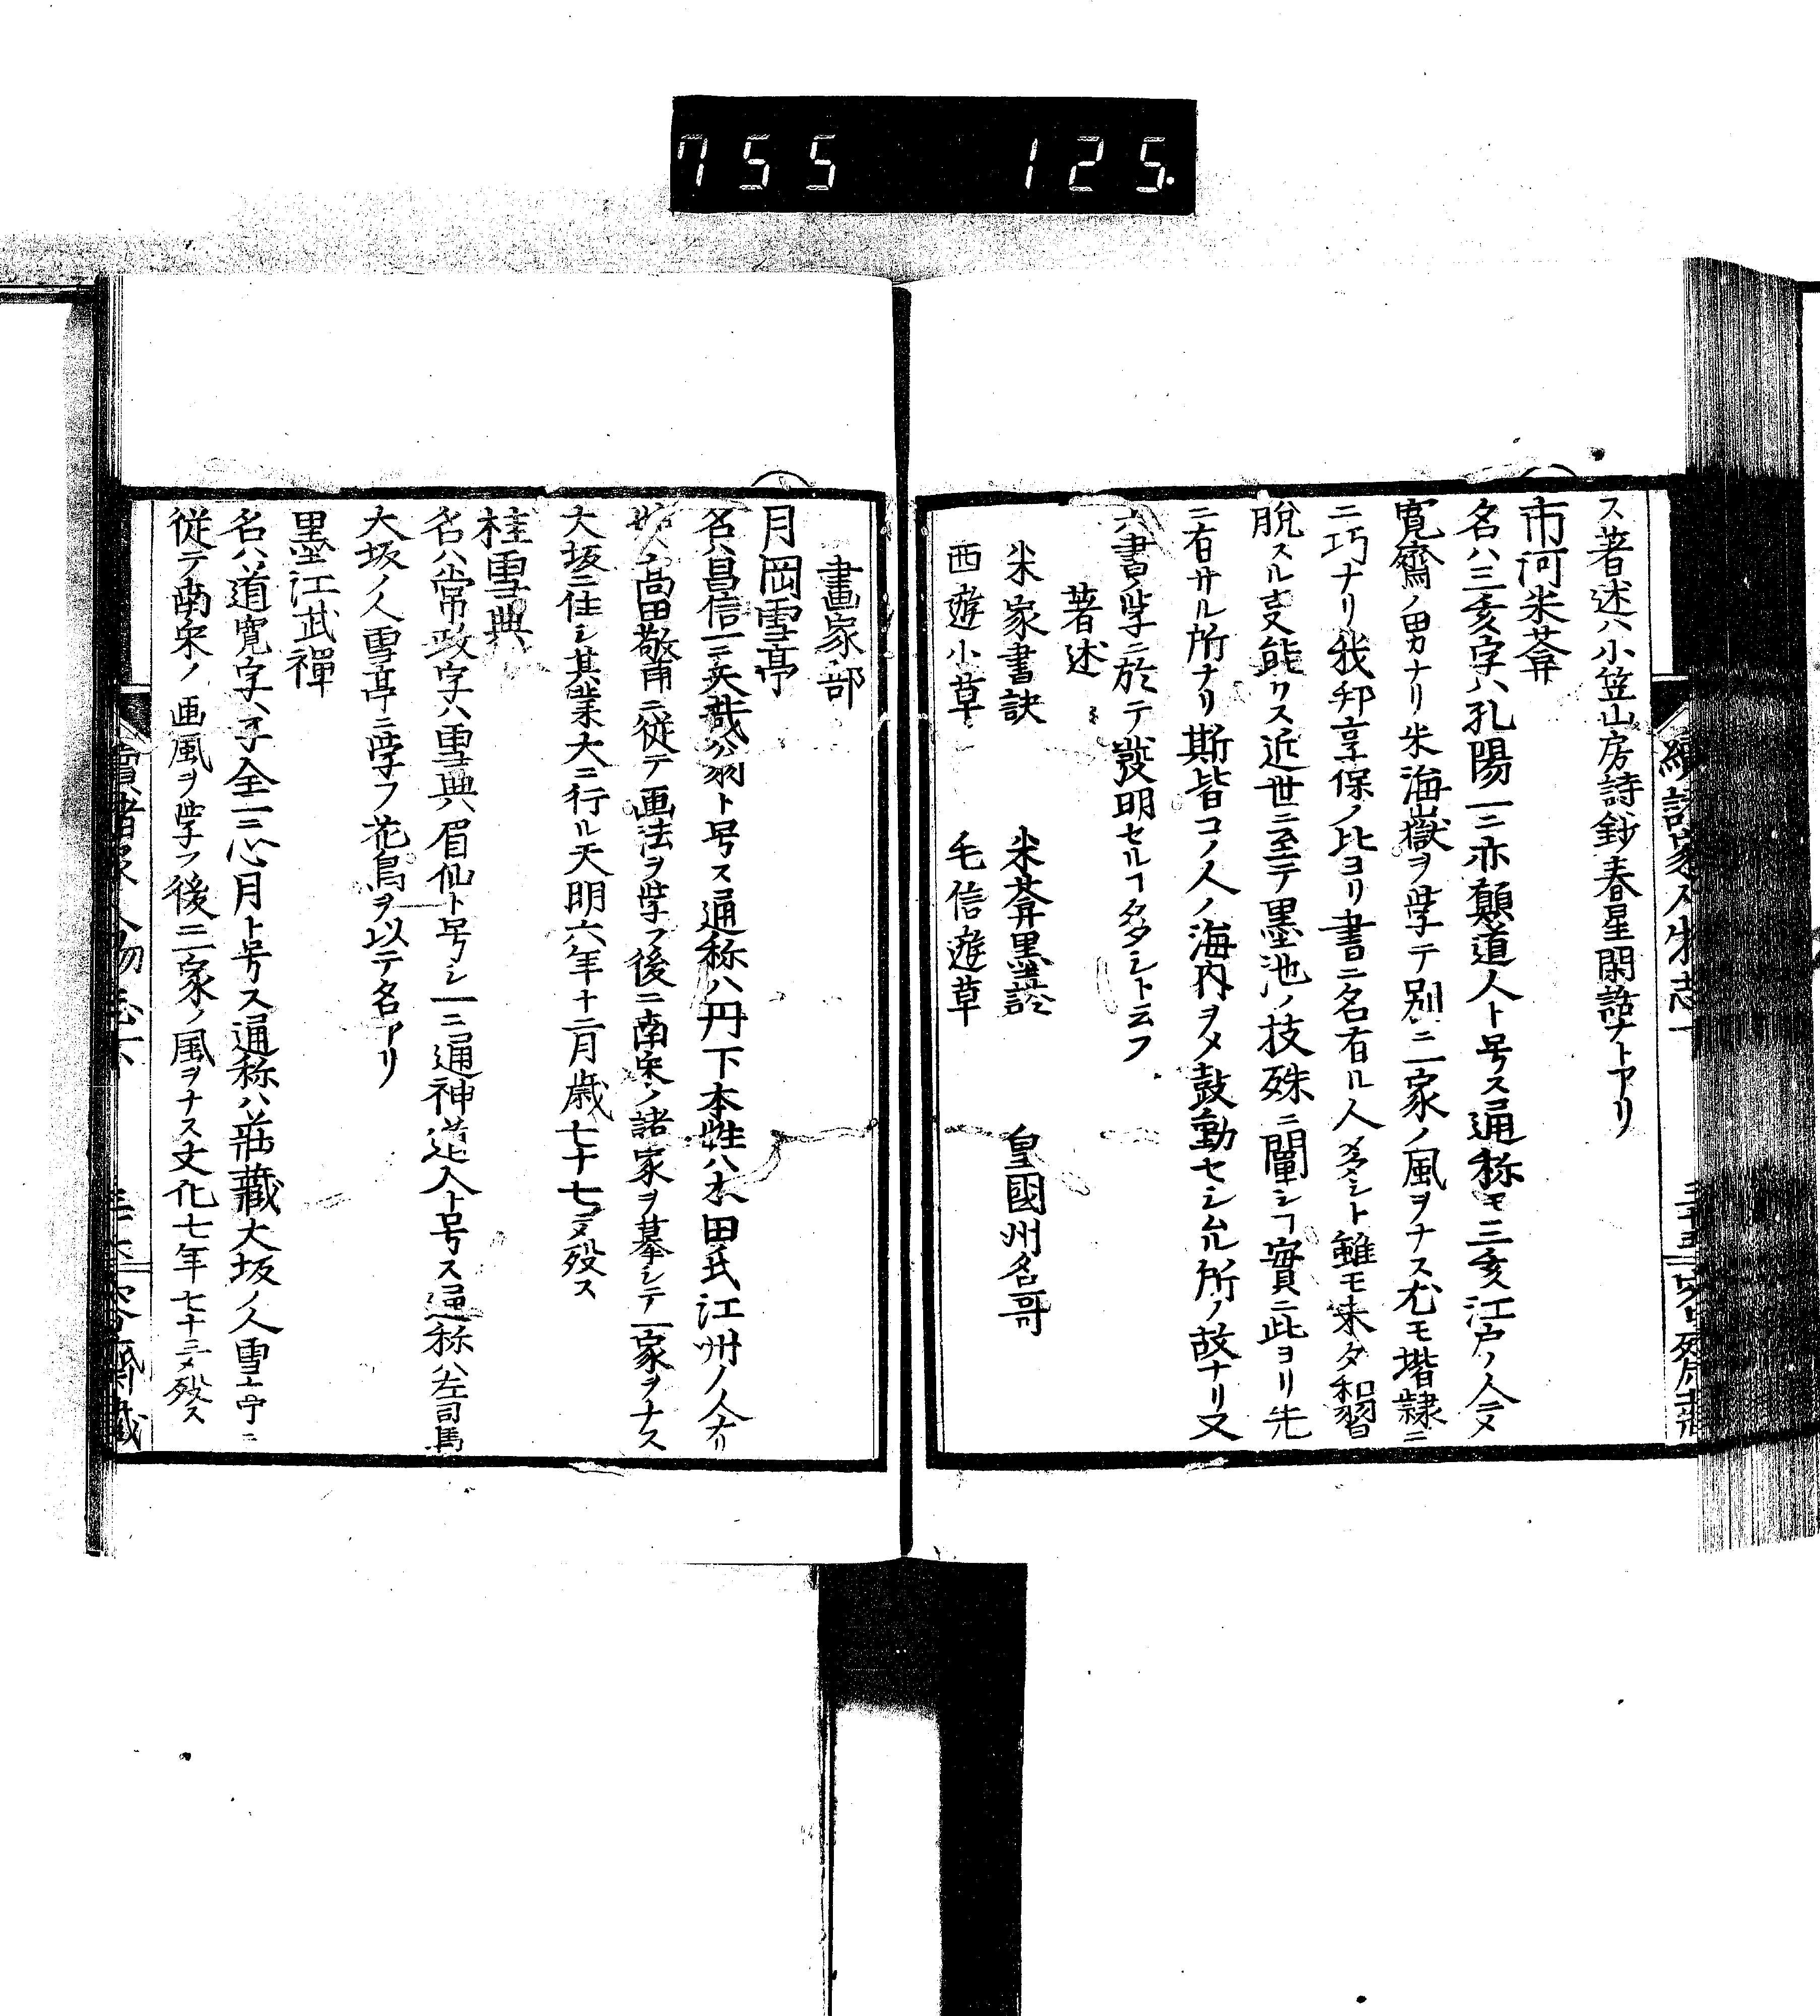 755 125.
ス著述ハ小笠山房詩鈔春星閑話ナトアリ
市河米菴
名ハ三亥字ハ孔陽一ニ亦顛道人ト号ス通称モ三亥江戸ノ人ニメ
寛齋ノ男ナリ米海嶽ヲ学テ别ニ一家ノ風ヲナス尤モ楷隷ニ
ニ巧ナリ我邦享保ノ比ヨリ書ニ名有ル人多シト雖モ未タ和習
脱スルヿ能ハス近世ニ至テ墨池ノ技殊ニ闡シヿ實ニ此ヨリ先
ニ有サル所ナリ斯皆コノ人ノ海内ヲメ鼓動セシムル所ノ故ナリ又
六書ノ学ニ於テ發明セルヿ多シト云フ
著述
米家書訣 米菴墨談 皇國州名哥
西遊小草 毛信遊草
畫家ノ部
月岡雪亭
名ハ昌信一ニ 翁ト号ス通称ハ丹下本姓ハ木田氏江州ノ人ナリ
始ハ高田敬甫ニ従テ画法ヲ学フ後ニ南宋ノ諸家ヲ摹シテ一家ヲナス
大坂ニ住シ其業大ニ行ル天明六年十二月歳七十七ニメ殁ス
桂雪典
名ハ常政字ハ雪典眉仙ト号シ一ニ通神道人ト号ス通称ハ左司馬
大坂ノ人雪亭ニ学フ花鳥ヲ以テ名アリ
墨江武禪
名ハ道寛字ハ子全一ニ心月ト号ス通称ハ莊藏大坂ノ人雪亭ニ
従テ南宋ノ画風ヲ学フ後ニ一家ノ風ヲナス文化七年七十三ニメ殁ス